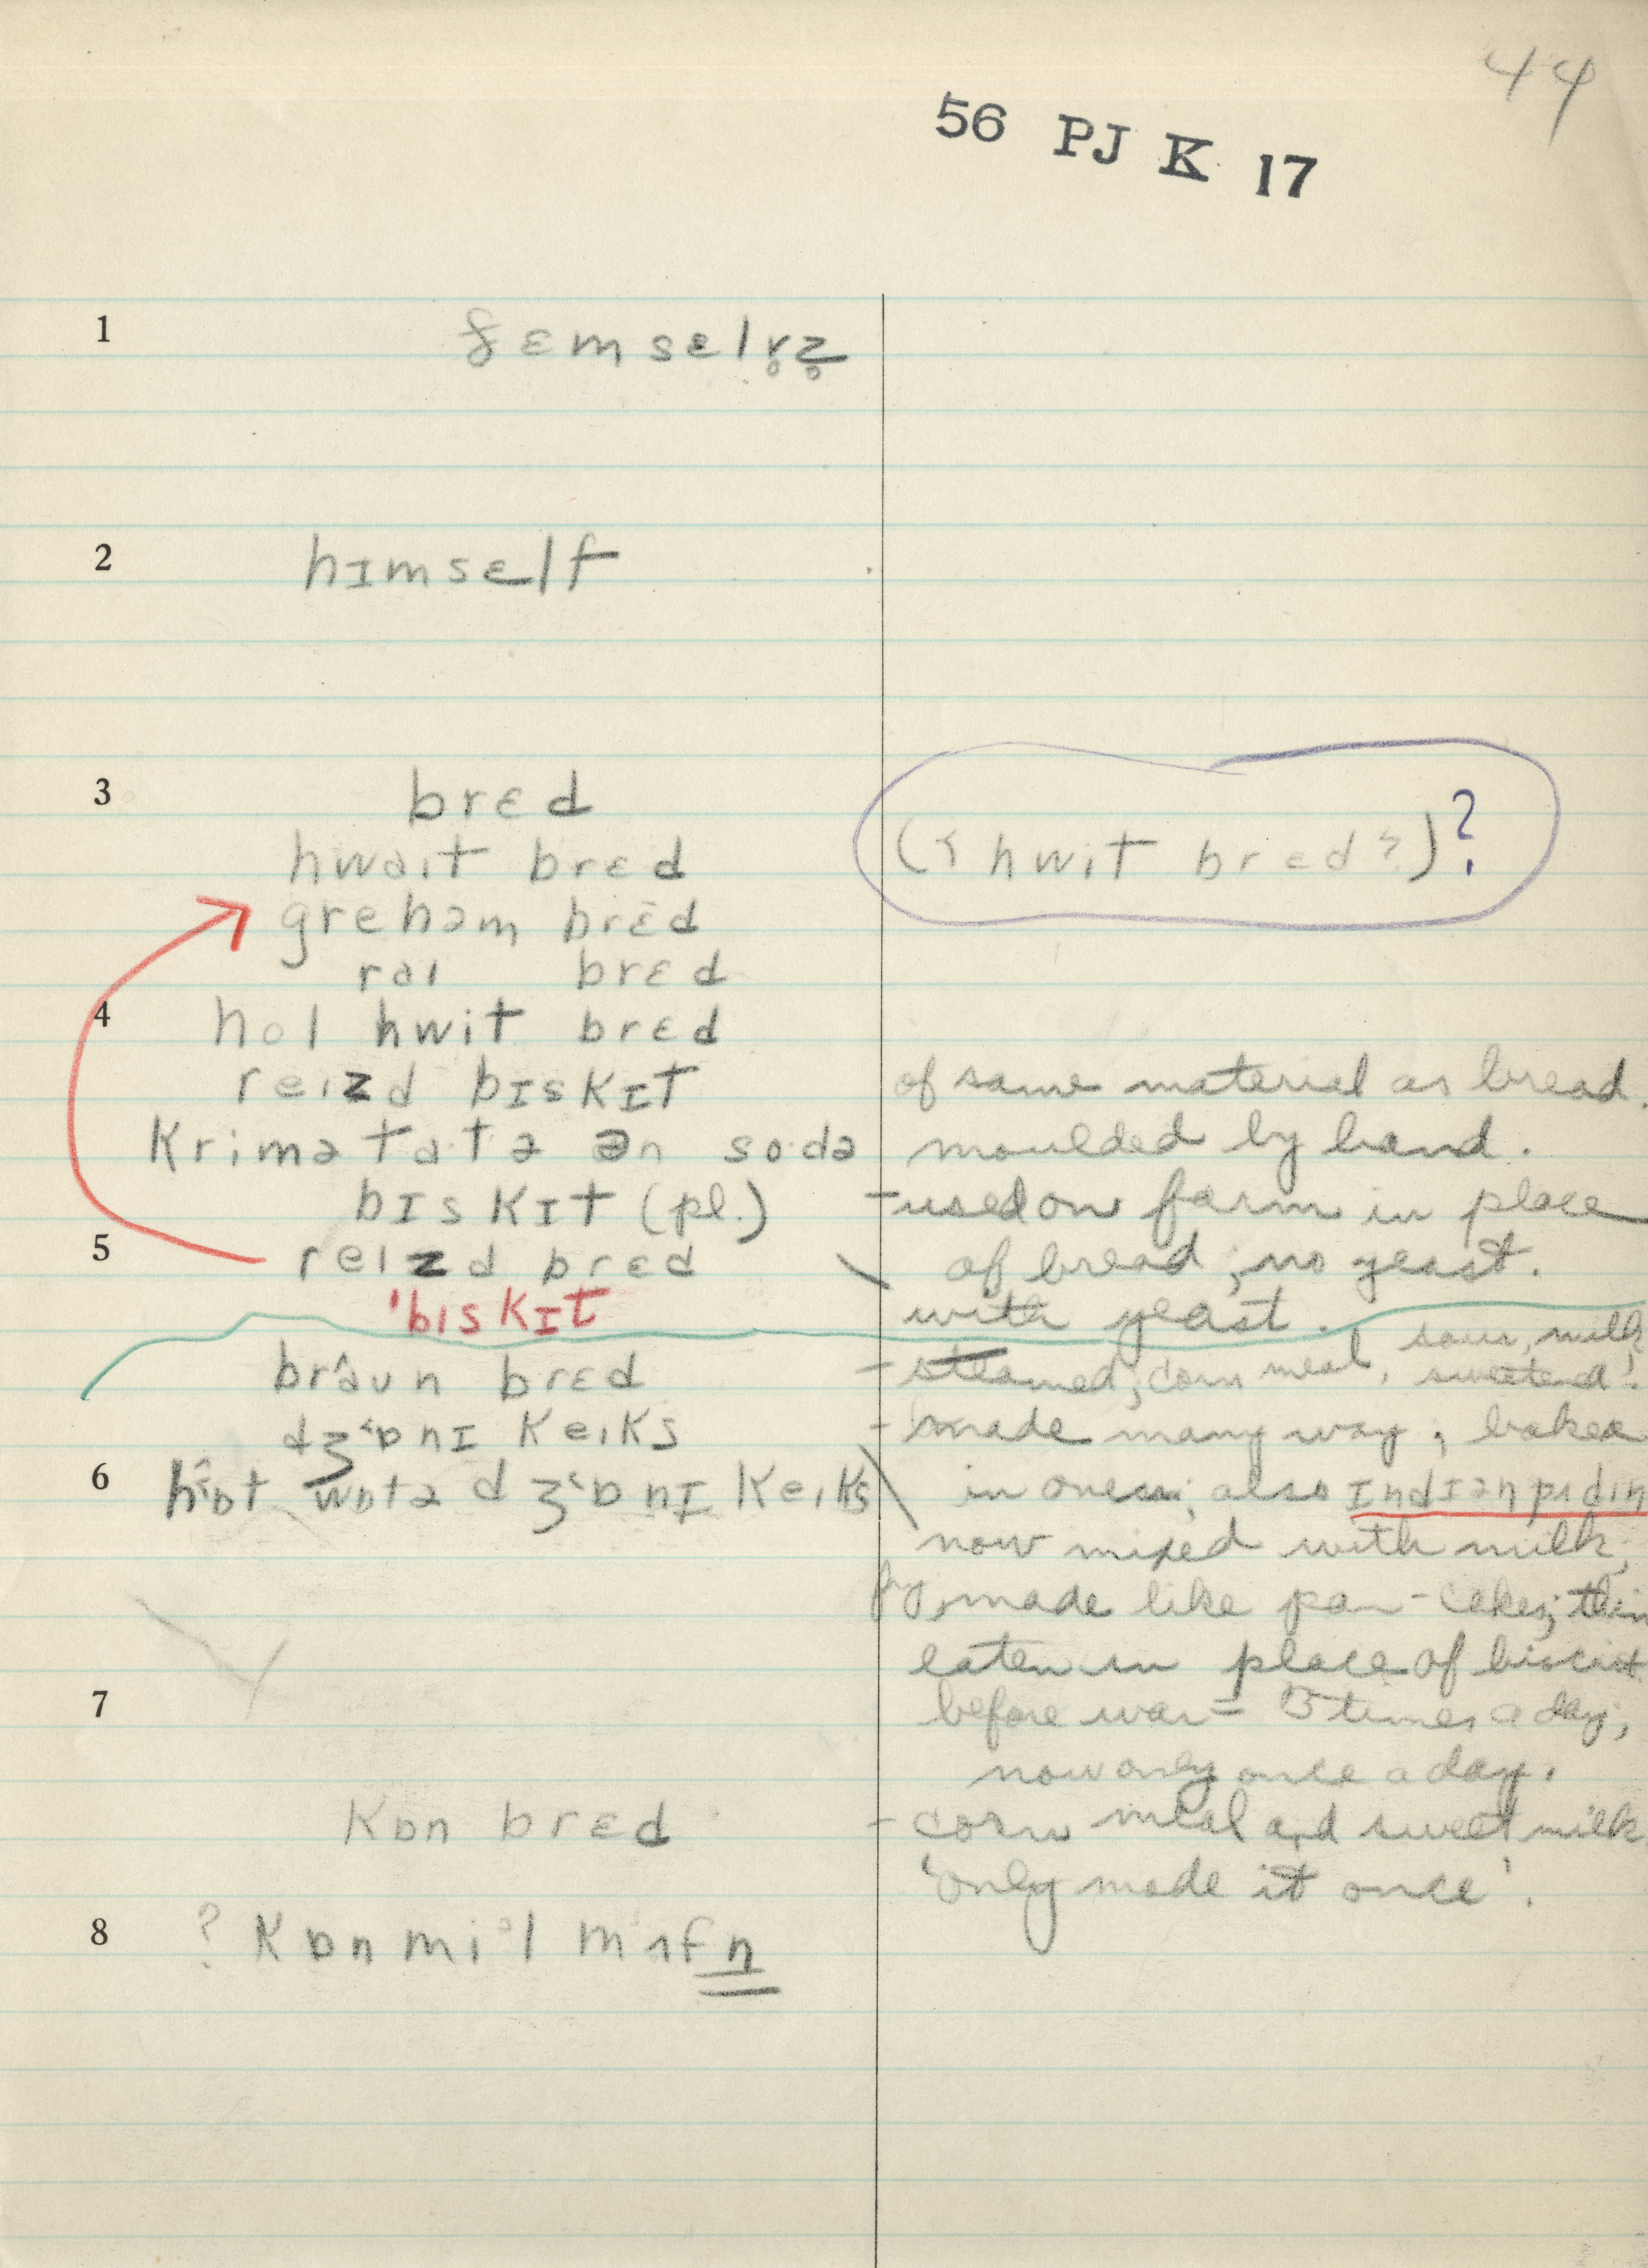 44
56 PJ K 17
1 ðɛmsɛlv̥z̥
2 hɪmsɛlf
3 brɛd
hwait brɛd (? hwit brɛd?)?
grehəm brɛd
rai brɛd
4 hol hwit brɛd
reizd bɪskɪt of same material as bread.
krimətɑ·tə ən so·də moulded by hand.
bɪskɪt (pl.) - used on farm in place
5 reizd brɛd of bread; no yeast.
'bɪskɪt with yeast.
sour milk
braun brɛd - steamed; corn meal, sweetend.
dʒɒnɪ keiks - made many way; baked
6 hɒt wɒtə dʒɒnɪ keiks in oven; also ɪndɪən pʊdɪn
now mixed with milk;
made like pan-cakes; thin
eaten in place of biscuit
7 before war = 3 times a day;
now only once a day.
kɒn brɛd - corn meal and sweet milk
'only made it once'.
8 ? kɒn miəl mʌfn